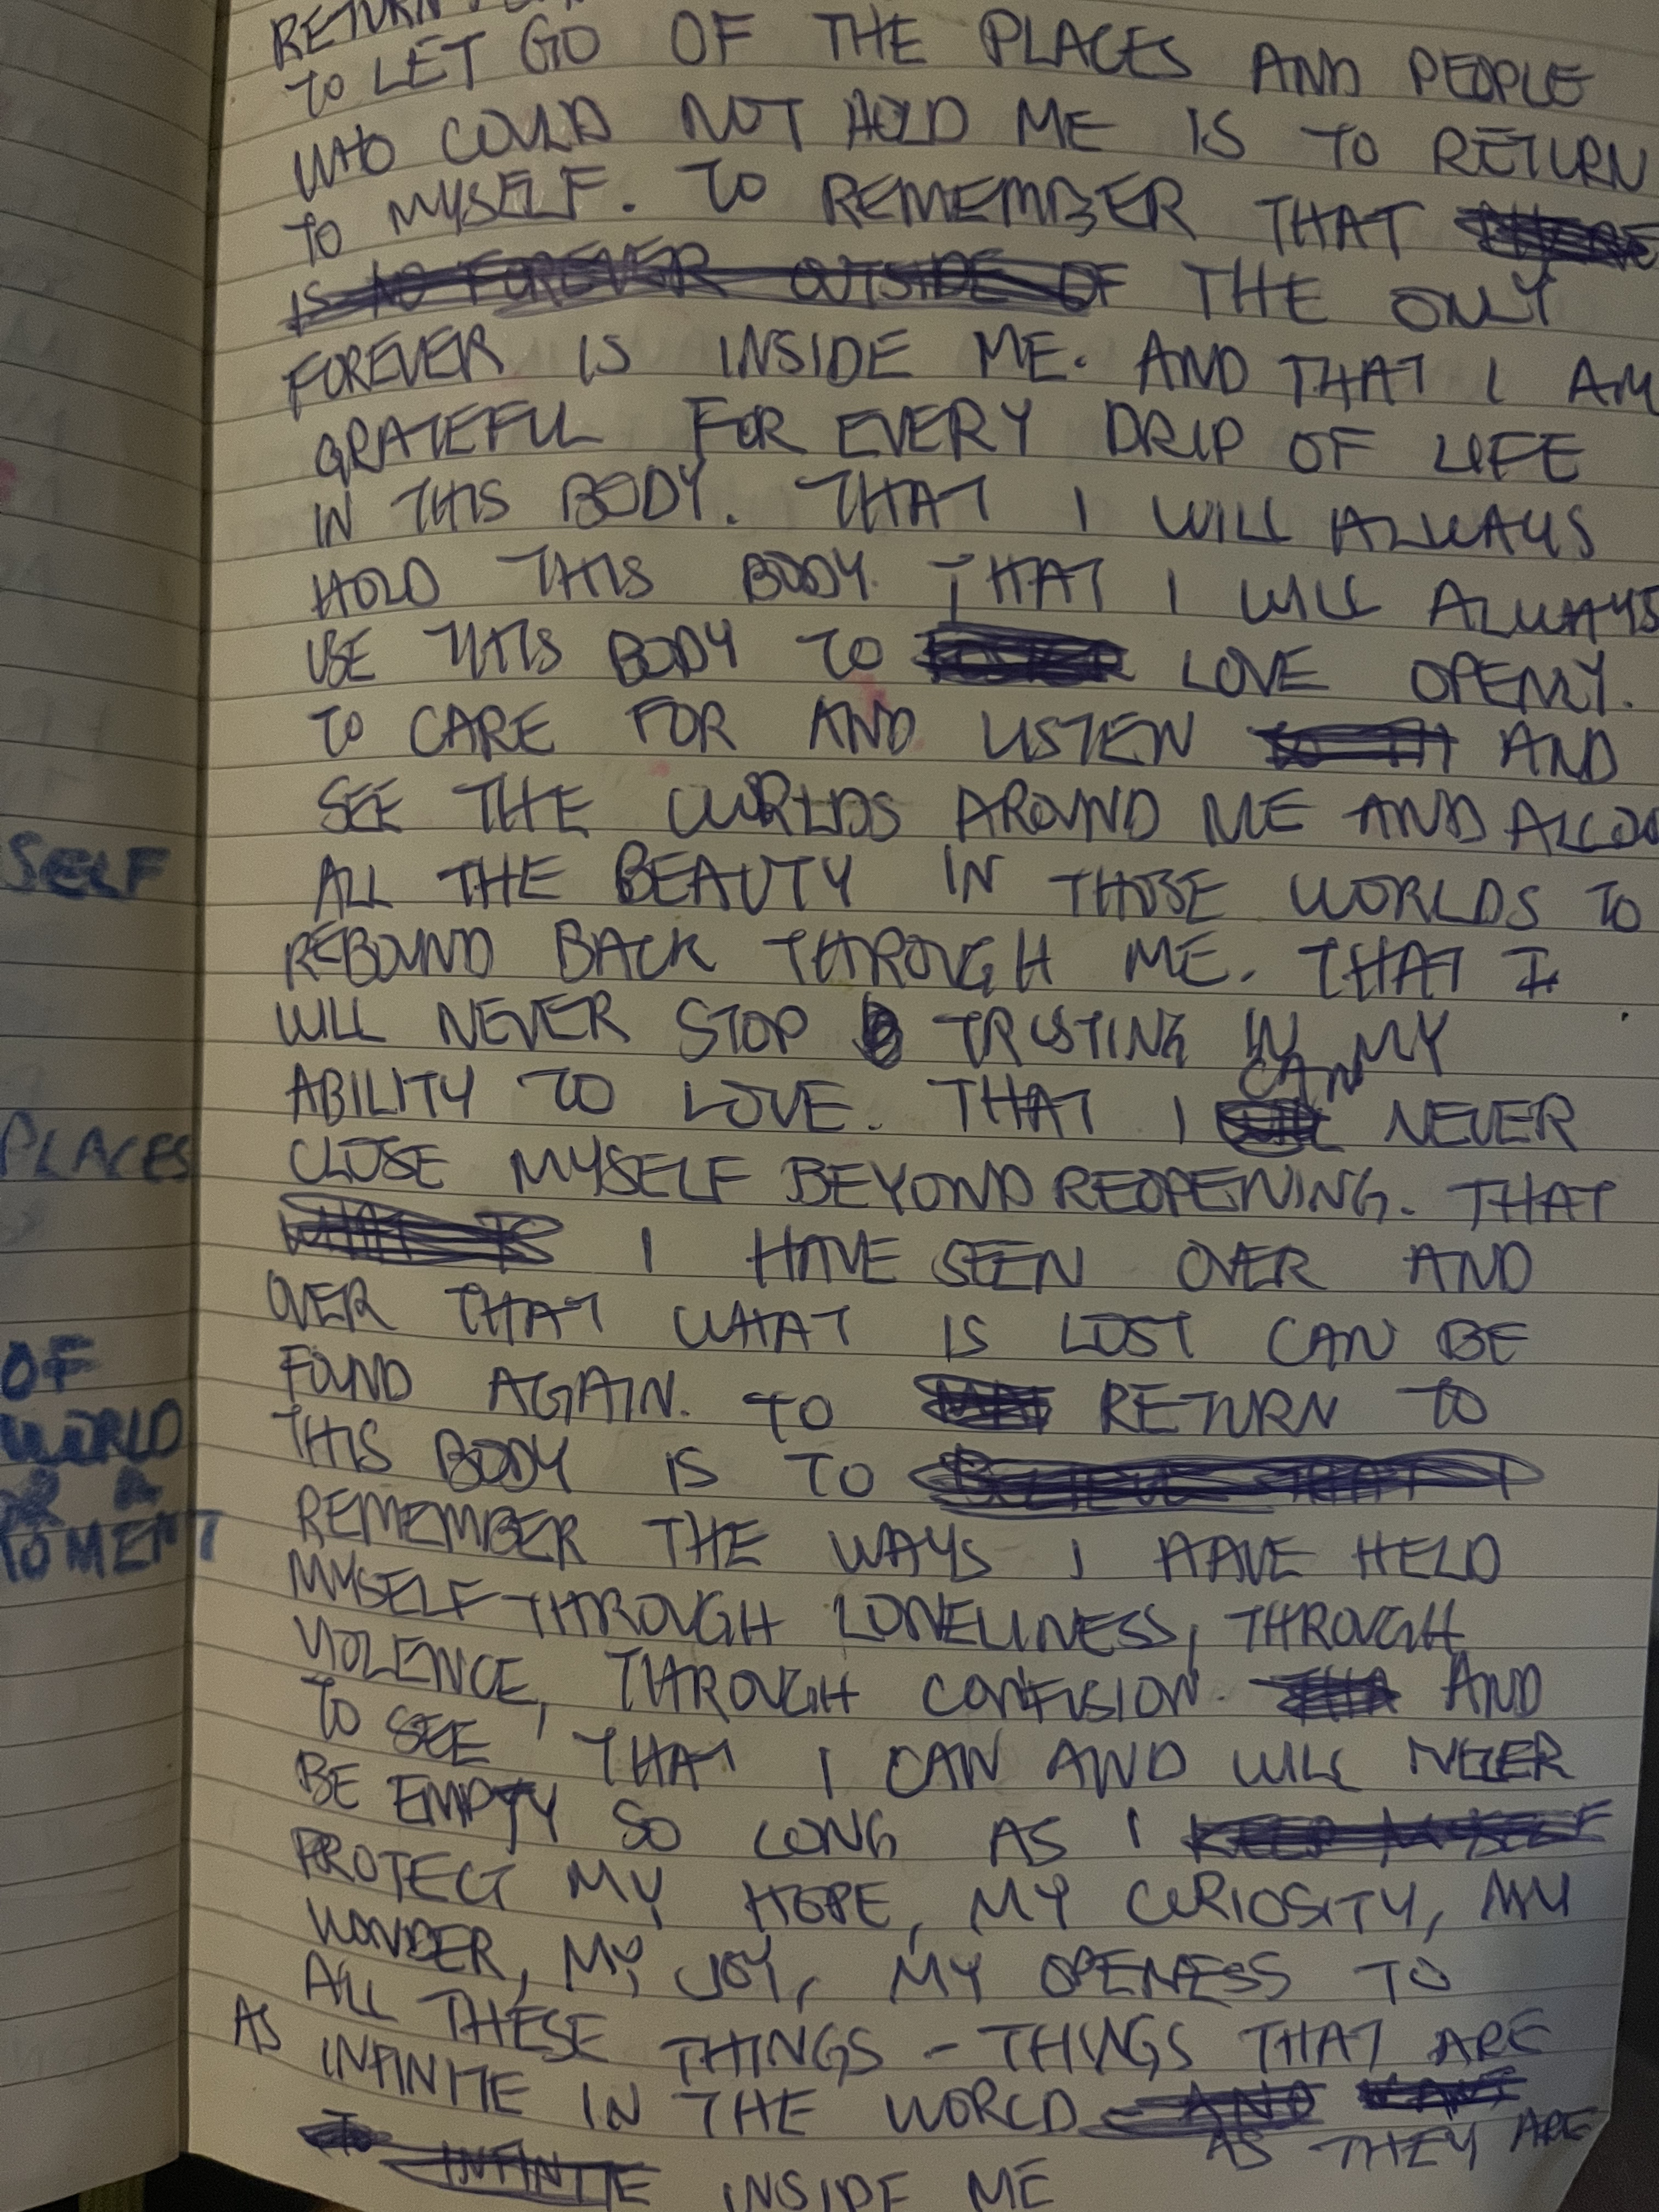 TO LET GO OF THE PLACES AND PEOPLE
WHO COULD NOT HOLD ME IS TO RETURN
TO MYSELF. TO REMEMBER THAT THERE
IS NO FOREVER OUTSIDE OF THE ONLY
FOREVER IS INSIDE ME. AND THAT I AM
GRATEFUL FOR EVERY DRIP OF LIFE
IN THIS BODY. THAT I WILL ALWAYS
HOLD THIS BODY. THAT I WILL ALWAYS
USE THIS BODY TO LOVE OPENLY.
TO CARE FOR AND LISTEN AND
SEE THE WORLDS AROUND ME AND
ALL THE BEAUTY IN THOSE WORLDS TO
REBOUND BACK THROUGH ME. THAT I
WILL NEVER STOP TRUSTING IN MY
ABILITY TO LOVE. THAT I CAN NEVER
CLOSE MYSELF BEYOND REOPENING. THAT
WHAT IS I HAVE SEEN OVER AND
OVER THAT WHAT IS LOST CAN BE
FOUND AGAIN. TO RETURN TO
THIS BODY IS TO BELIEVE THAT I
REMEMBER THE WAYS I HAVE HELD
MYSELF THROUGH LONELINESS, THROUGH
VIOLENCE, THROUGH CONFUSION. AND
TO SEE THAT I CAN AND WILL NEVER
BE EMPTY SO LONG AS I KEEP MYSELF
PROTECT MY HOPE, MY CURIOSITY, MY
WONDER, MY JOY, MY OPENESS TO
ALL THESE THINGS - THINGS THAT ARE
AS INFINITE IN THE WORLD AND
AS THEY ARE
INFINITE INSIDE ME
SELF
PLACES
OF
WORLD